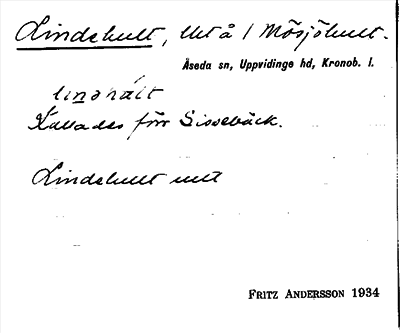 Lindehult, Ut å / Mösjöhult.
Åseda sn, Uppvidinge hd, Kronob. l.
Kallades förr Sissebäck.
Lindehult
FRITZ ANDERSSON 1934